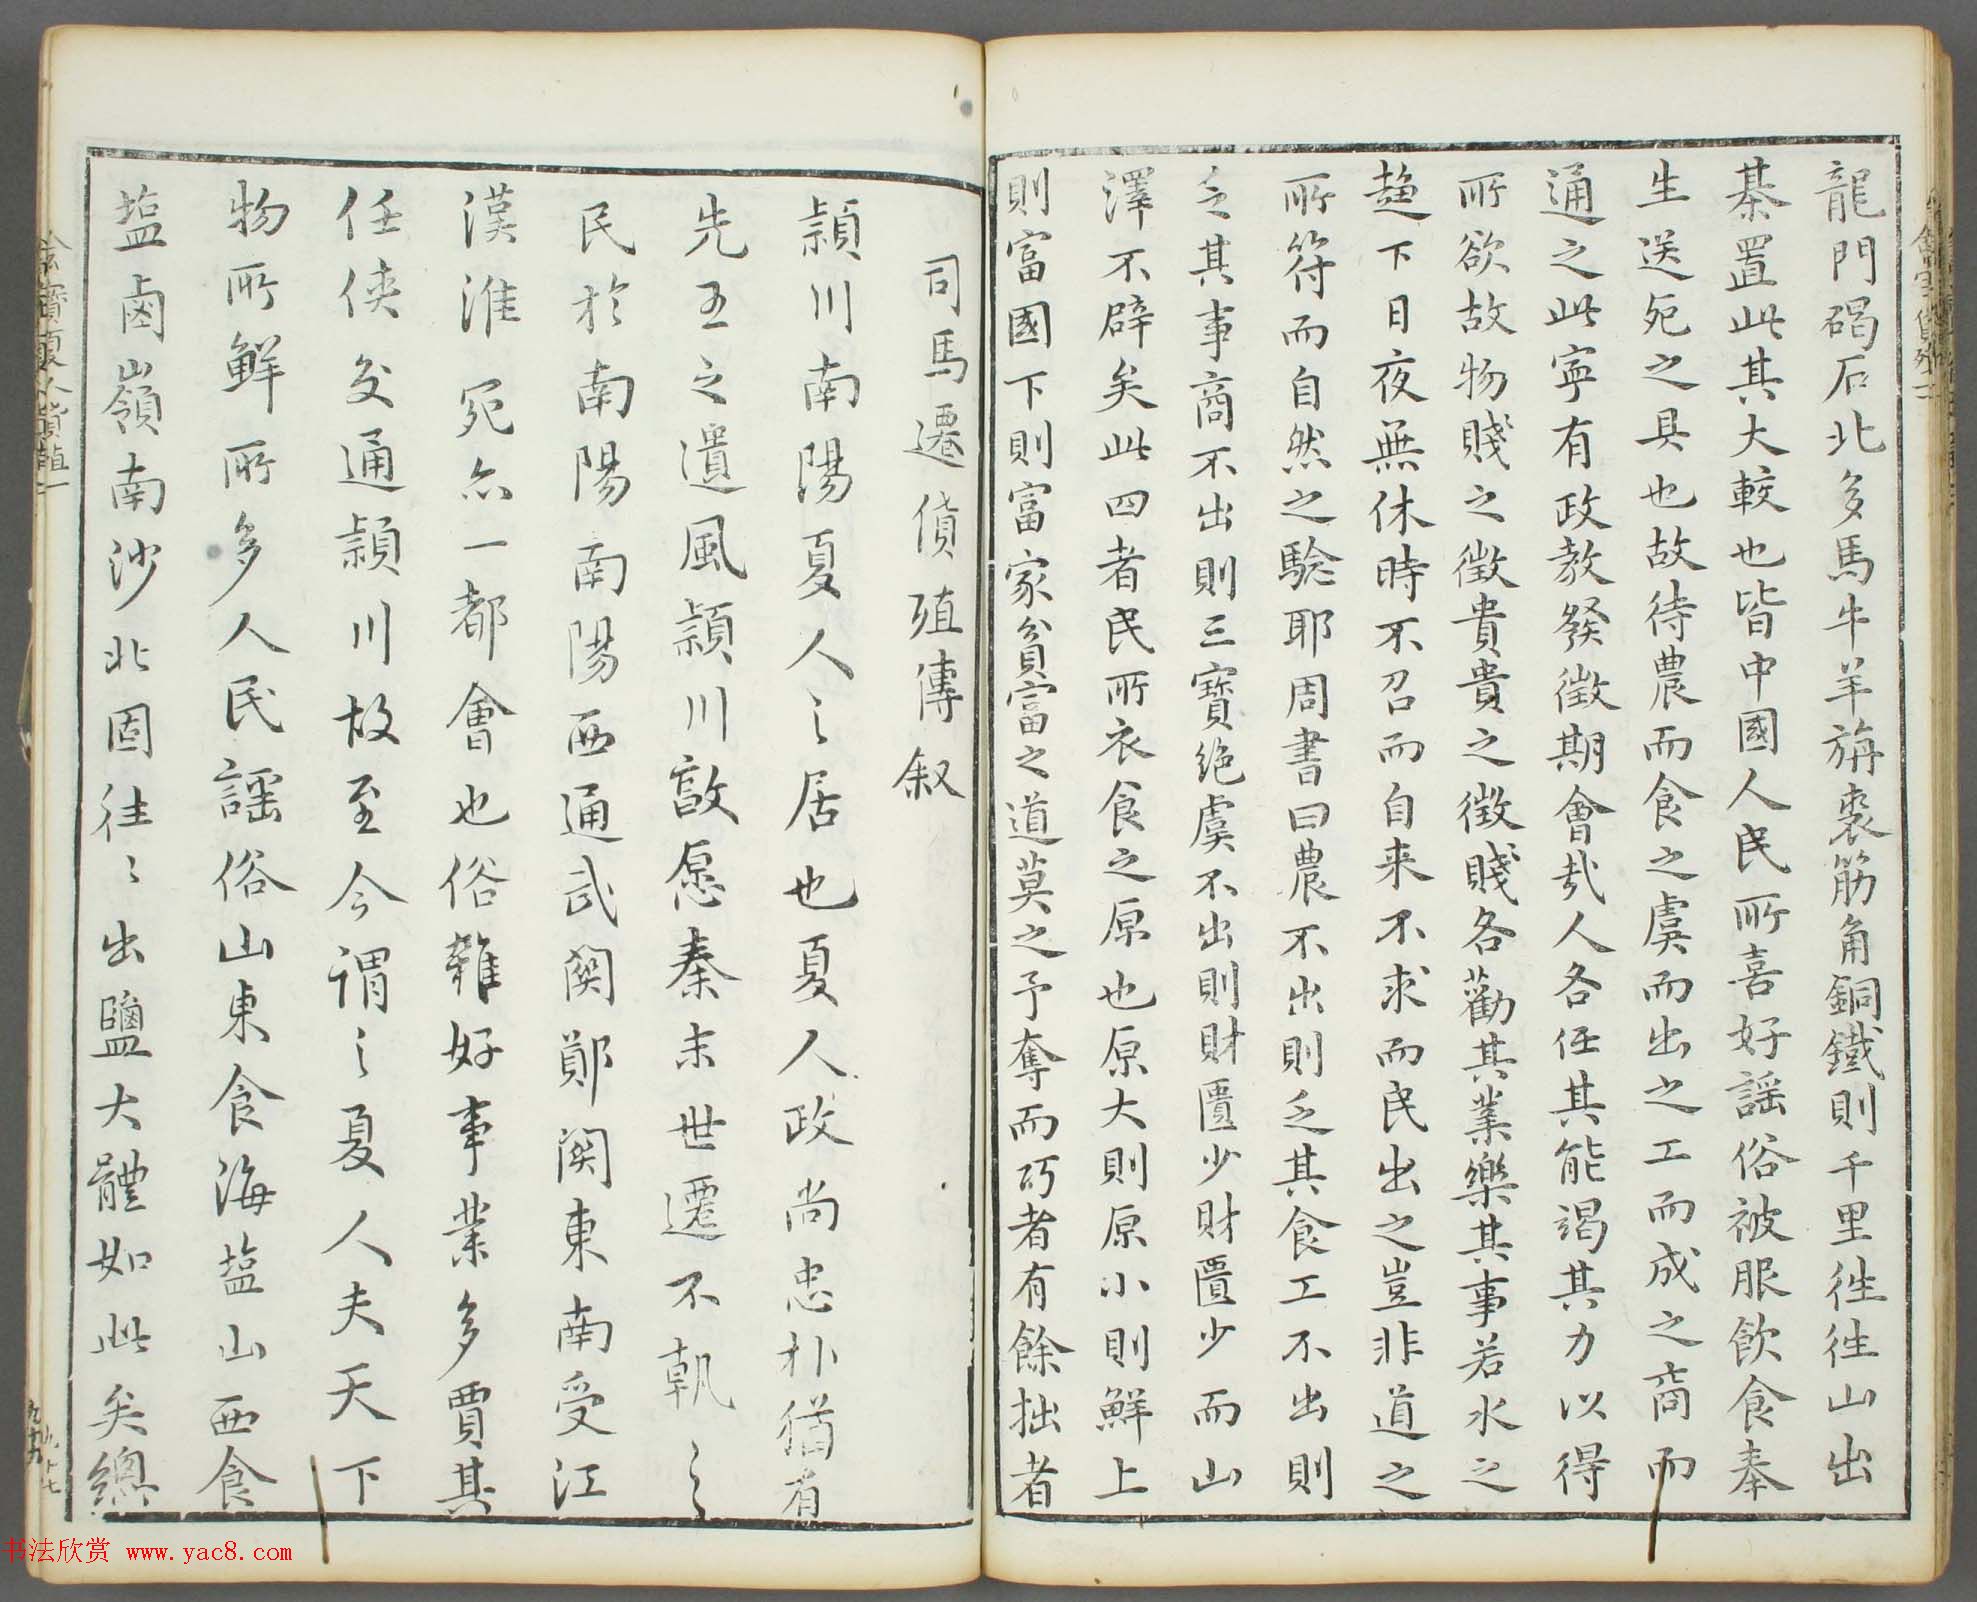 龍門碣石北多馬牛羊旃裘筋角銅鐵則千里往往山出
棊置此其大較也皆中國人民所喜好謡俗被服飲食奉
生送死之具也故待農而食之虞而出之工而成之商而
通之此寧有政教發徵期會哉人各任其能竭其力以得
所欲故物賤之徵貴貴之徵賤各勸其業樂其事若水之
趍下日夜無休時不召而自来不求而民出之豈非道之
所符而自然之驗耶周書曰農不出則乏其食工不出則
乏其事商不出則三寶絶虞不出則財匱少財匱少而山
澤不辟矣此四者民所衣食之原也原大則原小則鮮上
則富國下則富家貧富之道莫之予奪而巧者有餘拙者
司馬遷貨殖傳叙
潁川南陽夏人之居也夏人政尚忠朴猶有
先王之遺風潁川敦愿秦末世遷不軌之
民於南陽南陽西通武関鄖関東南受江
漢淮宛亦一都會也俗雜好事業多賈其
任俠交通潁川故至今謂之夏人夫天下
物所鮮所多人民謡俗山東食海塩山西食
塩鹵嶺南沙北固往往出鹽大體如此矣總
书法欣赏 www.yac8.com